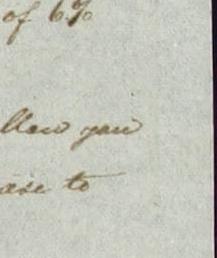 of 6%
llow you
ase to